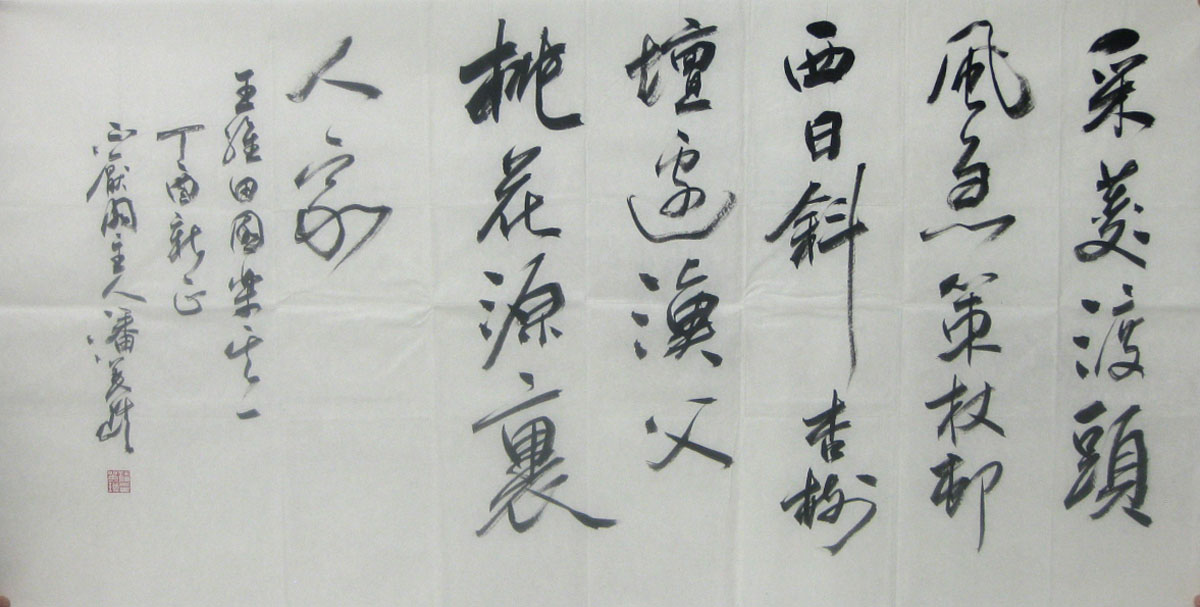 采菱渡頭
風急策杖邨
西日斜杏樹
壇邊漁父
桃花源裏
人家
王維田園樂其一
丁酉新正
主人潘